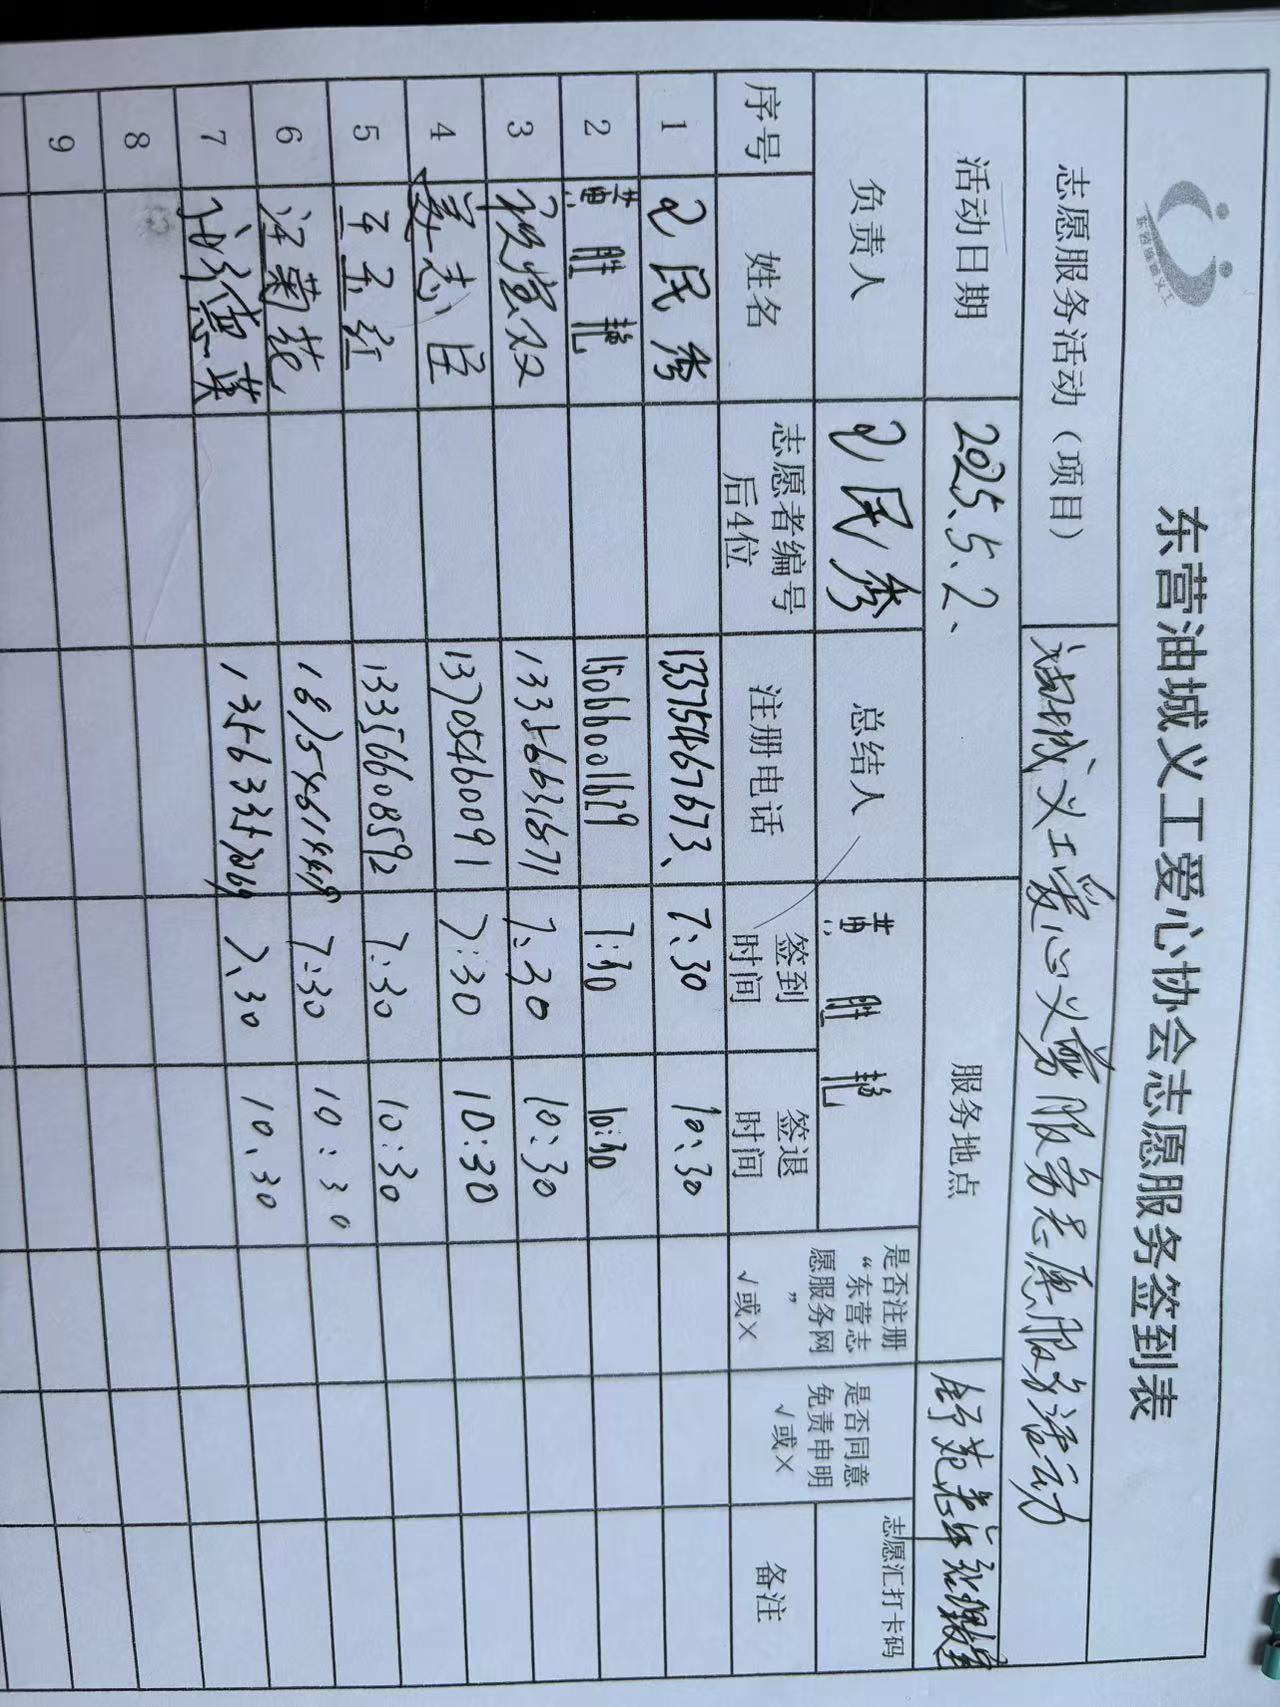 东营油城义工
东营油城义工爱心协会志愿服务签到表
志愿服务活动（项目） 油城义工爱心义剪服务志愿服务活动
活动日期 2025.5.2、 服务地点
负责人 民秀 总结人 黄胜艳 志愿汇打卡码
序号 姓名 志愿者编号后4位 注册电话 签到时间 签退时间 是否注册“东营志愿服务网” √或× 是否同意免责申明 √或× 备注
1 民秀 13375467673、 7:30 10:30
2 黄胜艳 15066001629 7:30 10:30
3 7:30 10:30
4 志 13705460091 7:30 10:30
5 玉红 13356608592 7:30 10:30
6 汪菊花 7:30 10:30
7 7.30 10.30
8
9